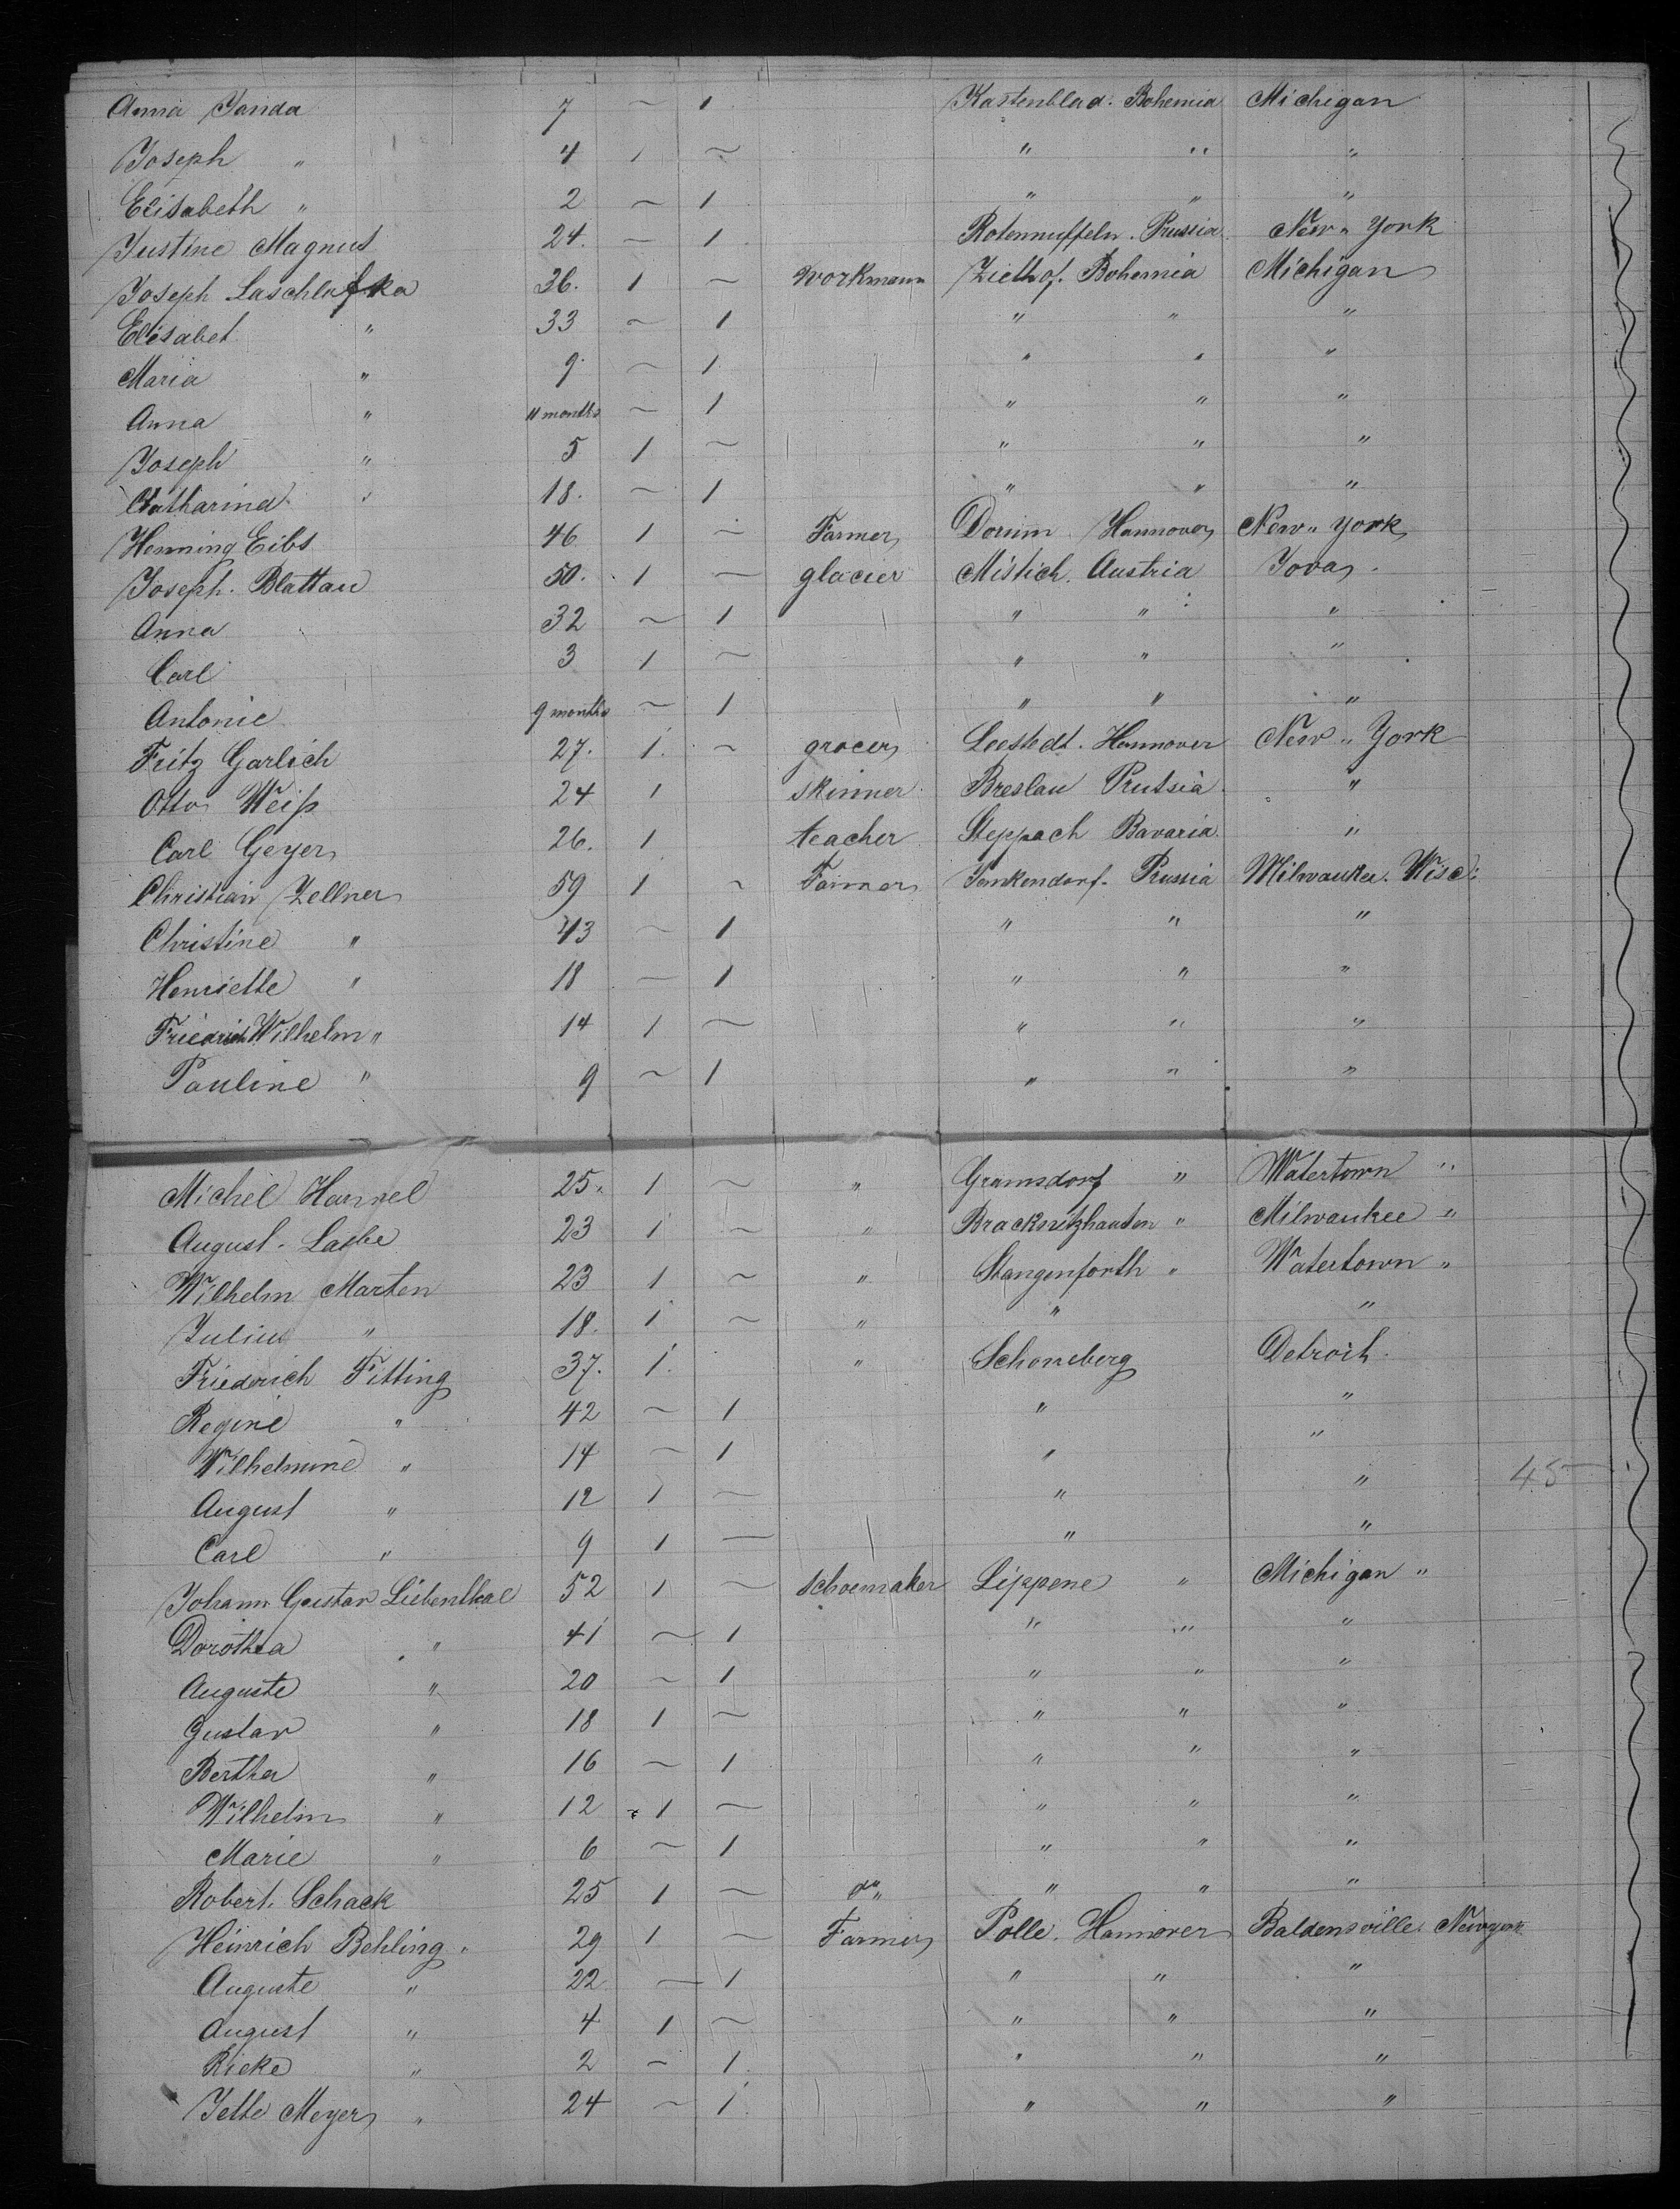 Anna Janda 7 ~ 1 Kastenblad. Bohemia Michigan
Joseph " 4 1 ~ " " "
Elisabeth " 2 ~ 1 " " "
Justine Magnus 24. ~ 1 Rotennuffeln. Prussia New " York
Joseph Laschlafka 36. 1 ~ workmann Ziethof. Bohemia Michigan
Elisabet " 33 ~ 1 " " "
Maria " 9. ~ 1 " " "
Anna " 11 months ~ 1 " " "
Joseph " 5 1 ~ " " "
Catharina " 18. ~ 1 " " "
Henning Eibs 46 1 ~ Farmer Dorum Hannover New " York
Joseph. Blattau 50. 1 ~ glacier Mistich. Austria Jova.
Anna 32 ~ 1 " " "
Carl 3 1 ~ " " "
Antonie 9 months ~ 1 " " "
Fritz Garlich 27. 1 ~ grocer Loestedt. Hannover New " York
Otto Weiß 24 1 skinner Breslau Prussia "
Carl Geyer 26. 1 teacher Steppach Bavaria "
Christian Zellner 59 1 ~ Farmer Jankendorf. Prussia Milwaukee. Wisc:
Christine " 43 ~ 1 " " "
Henriette " 18 ~ 1 " " "
Friedrich Wilhelm " 14 1 ~ " " "
Pauline " 9 ~ 1 " " "
Michel Hannel 25. 1 ~ " Gramsdorf " Watertown "
August. 23 1 ~ " " Milwaukee "
Wilhelm Marten 23 1 ~ " Stangenforth " Watertown "
Julius " 18. 1 ~ " " "
Friederich Fitting 37. 1 " Schoneberg Detroit.
Regine " 42 ~ 1 " "
Wilhelmine " 14 ~ 1 " "
August " 12 1 ~ " " 45
Carl " 9 1 ~ " "
Johann Gustav Liebenthal 52 1 ~ schoemaker Lippene " Michigan "
Dorothea " 41 ~ 1 " " "
Auguste " 20 ~ 1 " " "
Gustav " 18 1 ~ " " "
Bertha " 16 ~ 1 " " "
Wilhelm " 12 1 ~ " " "
Marie " 6 ~ 1 " " "
Robert. Schack 25 1 ~ do " " " "
Heinrich Behling. 29 1 ~ Farmer Polle. Hannover Baldensville. Newyork
Auguste " 22 ~ 1 " " "
August " 4 1 ~ " " "
Rieke " 2 ~ 1 " " "
Jette Meyer " 24 ~ 1 " " "